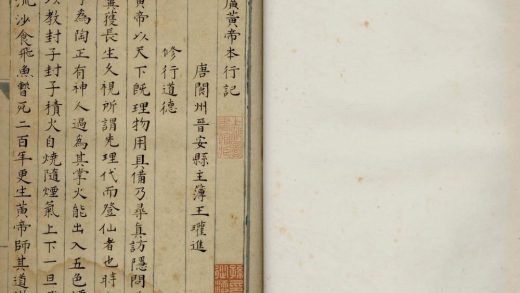 廣黃帝本行記
唐閬州晉安縣主簿王瓘進
修行道德
黃帝以天下既理物用具備乃尋真訪隱問
冀獲長生久視所謂先理代而登仙者也時
子為陶正有神人過為其掌火能出入五色
以教封子封子積火自燒隨煙氣上下一旦
流沙食飛魚暫死二百年更生黃帝師其道